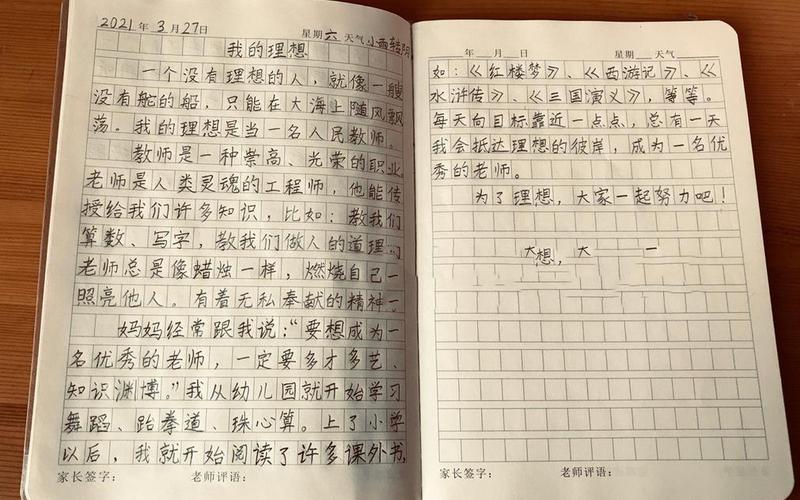 2021年3月27日 星期六 天气小雨转阴
我的理想
一个没有理想的人，就像一艘
没有舵的船，只能在大海上随风飘
荡。我的理想是当一名人民教师。
教师是一种崇高、光荣的职业
老师是人类灵魂的工程师，他能传
授给我们许多知识，比如：教我们
算数、写字，教我们做人的道理
老师总是像蜡烛一样，燃烧自己
照亮他人。有着无私奉献的精神
妈妈经常跟我说：“要想成为一
名优秀的老师，一定要多才多艺、
知识渊博。”我从幼儿园就开始学习
舞蹈、跆拳道、珠心算。上了小学
以后，我就开始阅读了许多课外书，
家长签字： 老师评语：
年 月 日 星期 天气
如：《红楼梦》、《西游记》、《
水浒传》、《三国演义》，等等。
每天向目标靠近一点点，总有一天
我会抵达理想的彼岸，成为一名优
秀的老师。
为了理想，大家一起努力吧！
大想，大一
家长签字： 老师评语：